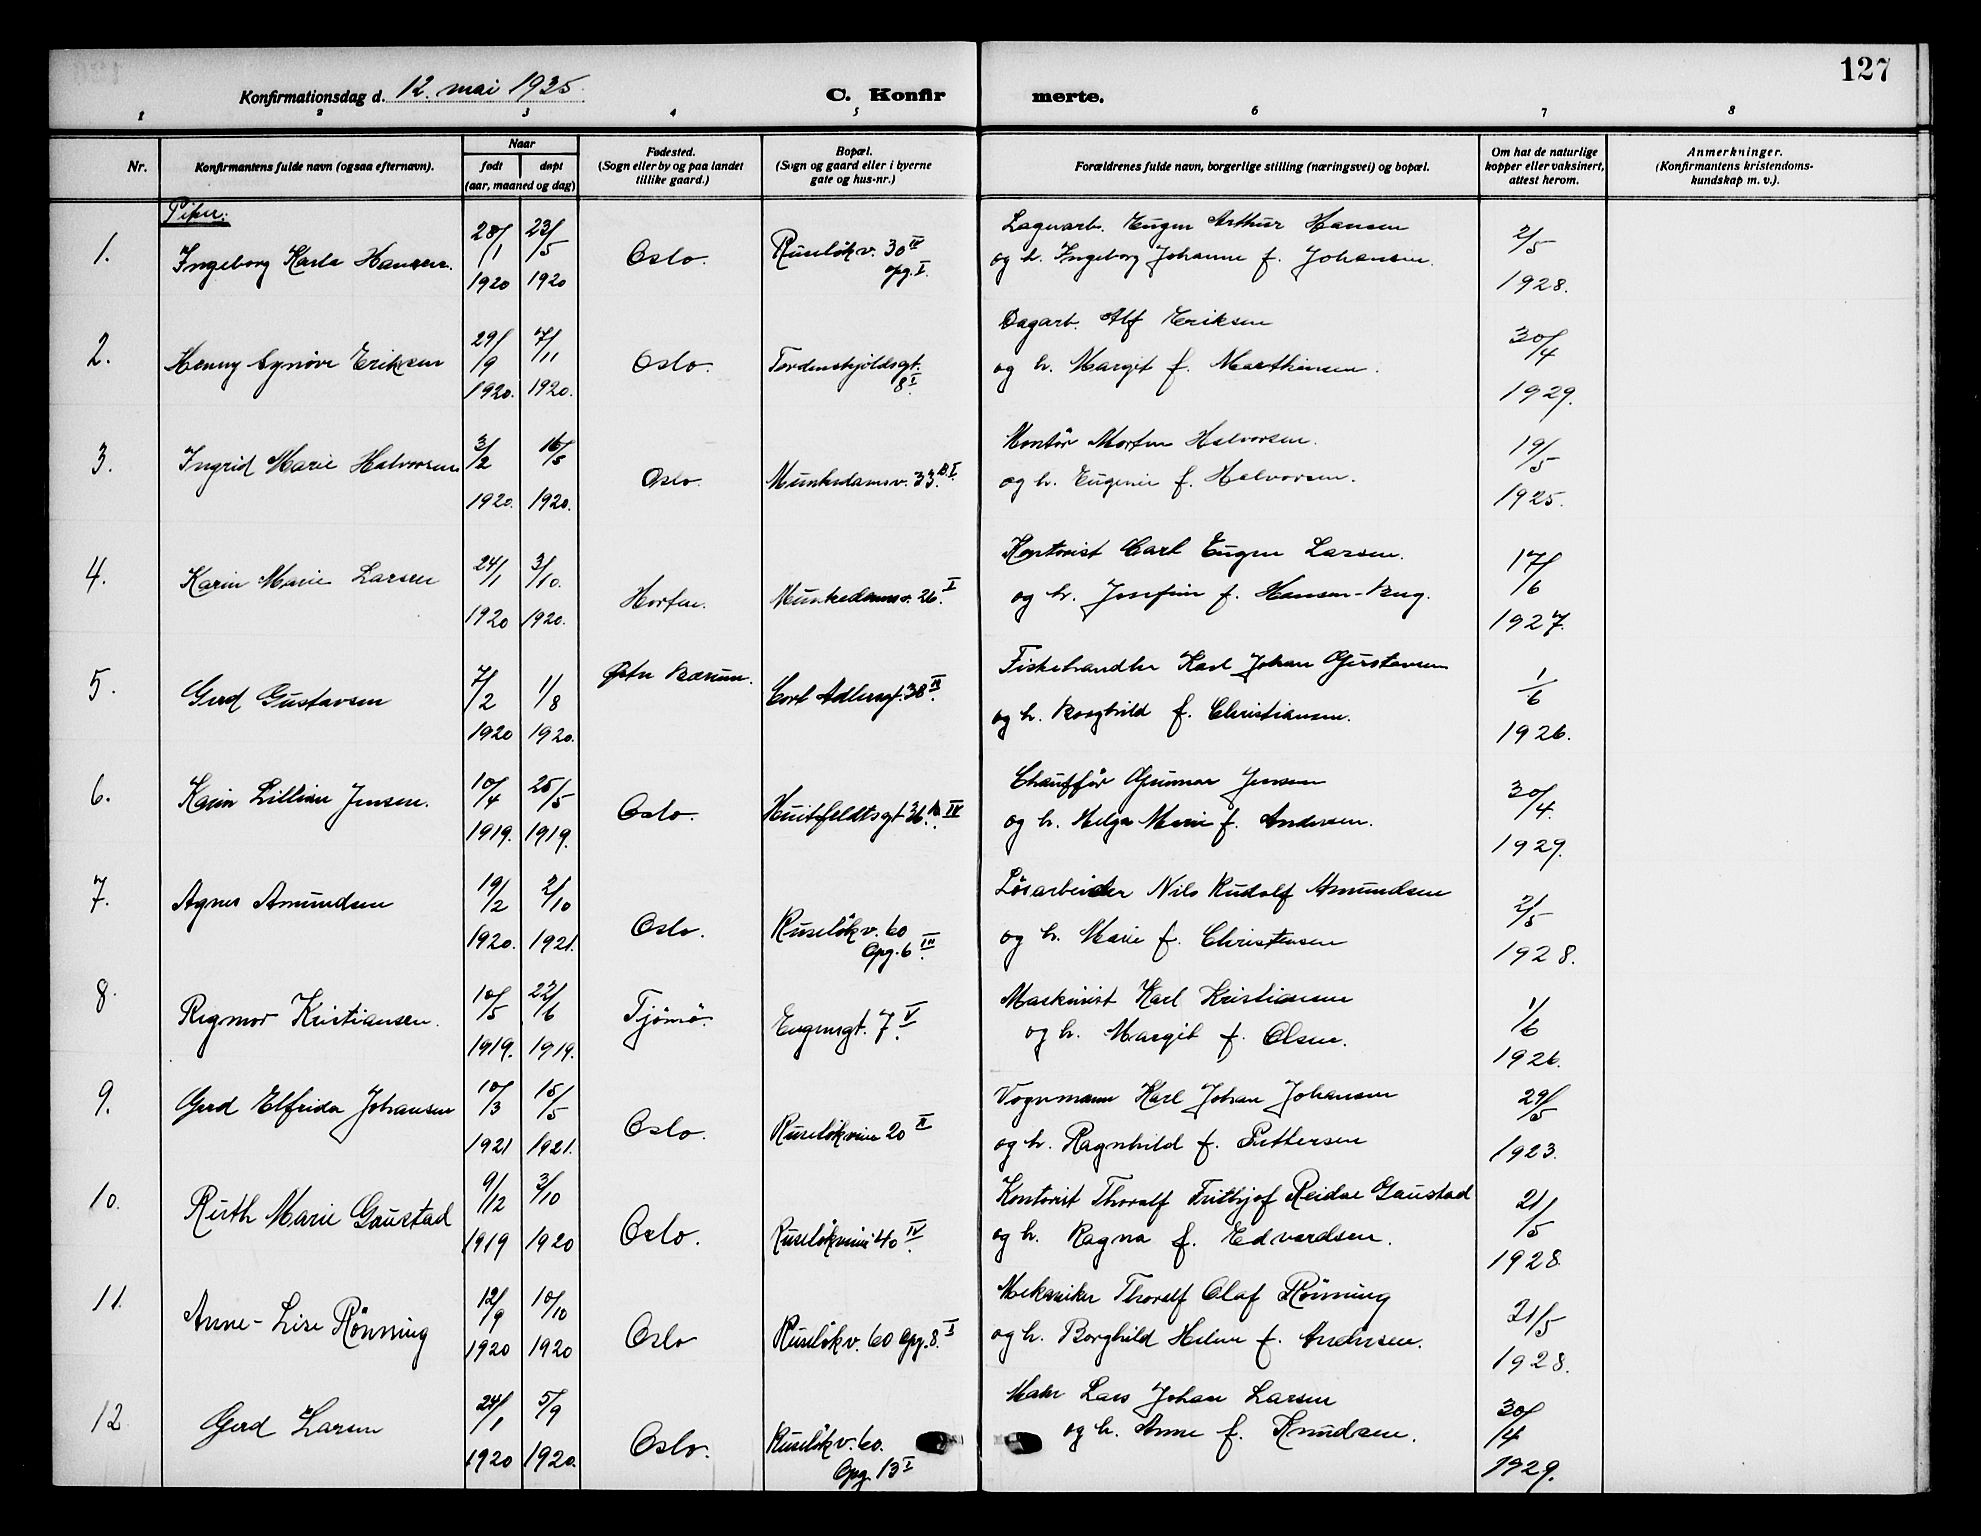 127
Konfirmationsdag d. 12. mai 1935.
C. Konfir
merte.
1 2 3 4 5 6 7 8
Nr.
Konfirmantens fulde navn (ogsaa efternavn).
Naar
født
døpt
(aar, maaned og dag)
Fødested.
(Sogn eller by og paa landet
tillike gaard.)
Bopæl.
(Sogn og gaard eller i byerne
gate og hus-nr.)
Forældrenes fulde navn, borgerlige stilling (næringsvei) og bopæl.
Om hat de naturlige
kopper eller vaksinert,
attest herom.
Anmerkninger.
(Konfirmantens kristendoms-
kundskap m. v.).
Piker:
1. Ingeborg Karla Hansen. 28/1 1920 23/5 1920 Oslo. Ruseløkv. 30 IV opg. I.
Lagerarb. Eugen Arthur Hansen
og h. Ingeborg Johanne f. Johansen. 2/5 1928.
2. Henny Synøve Eriksen 29/9 1920. 7/11 1920. Oslo. Tordenskjoldsgt. 8 I
Dagarb. Alf Eriksen
og h. Margit f. Marthinsen. 30/4 1929.
3. Ingrid Marie Halvorsen 3/2 1920. 16/5 1920. Oslo. Munkedamsv. 33. B I.
Montör Morten Halvorsen.
og h. Eugenie f. Halvorsen. 19/5 1925.
4. Karin Marie Larsen 24/1 1920 3/10. 1920. Horten. Munkedamsv. 26. I
Kontorist Carl Eugen Larsen.
og h. Josefine f. Hansen-Berg. 17/6 1927.
5. Gerd Gustavsen 7/2 1920 1/8 1920. Østre Bærum. Cort Adlersgt. 38 II.
Fiskehandler Karl Johan Gustavsen
og h. Borghild f. Christiansen. 1/6 1926.
6. Karin Lillian Jensen. 10/4 1919. 25/5 1919. Oslo. Huitfeldtsgt 36. b. IV
Chauffør Gunnar Jensen
og h. Helga Marie f. Andersen. 30/4 1929.
7. Agnes Amundsen 19/2 1920. 2/10 1921. Oslo. Ruseløkv. 60 Opg. 6 III.
Løsarbeider Nils Rudolf Amundsen
og h. Marie f. Christensen 2/5 1928.
8. Rigmor Kristiansen. 10/5 1919. 22/6 1919. Tjömö. Eugensgt. 7 V.
Maskinist Karl Kristiansen
og h. Margit f. Olsen. 1/6 1926.
9. Gerd Elfrida Johansen 10/3 1921 15/5 1921. Oslo. Ruseløkveien 20 II
Vognmann Karl Johan Johansen
og h. Ragnhild f. Pettersen 29/5 1923.
10. Ruth Marie Gaustad 9/12 1919 3/10 1920 Oslo. Ruseløkveien 40 IV.
Kontorist Thoralf Frithjof Reidar Gaustad
og h. Ragna f. Edvardsen. 21/5 1928.
11. Anne-Lise Rönning 12/9 1920 10/10 1920 Oslo Ruseløkv. 60 Opg. 8. I
Mekaniker Thoralf Olaf Rönning
og h. Borghild Helene f. Andersen. 21/5 1928.
12. Gerd Larsen 24/1 1920 5/9 1920. Oslo. Ruseløkv. 60. Opg. 13 I
Maler Lars Johan Larsen
og h. Anne f. Knudsen. 30/4 1929.